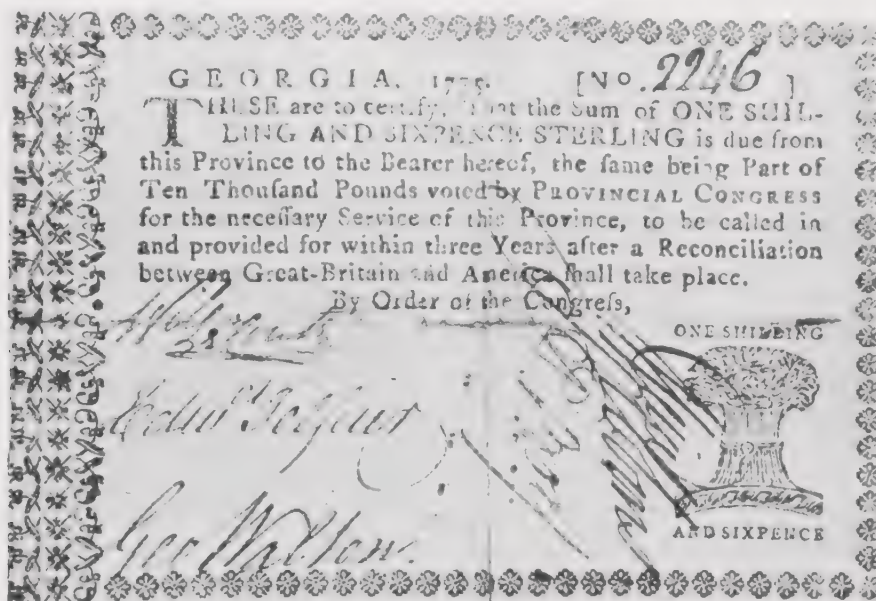 GEORGIA, 1775. [No. 2246]
THESE are to certify, That the Sum of ONE SHIL-
LING AND SIXPENCE STERLING is due from
this Province to the Bearer hereof, the ſame being Part of
Ten Thouſand Pounds voted by PROVINCIAL CONGRESS
for the neceſſary Service of this Province, to be called in
and provided for within three Years after a Reconciliation
between Great-Britain and America ſhall take place.
By Order of the Congreſs,
ONE SHILLING
Edwd Telfair
Geo Walton.
AND SIXPENCE